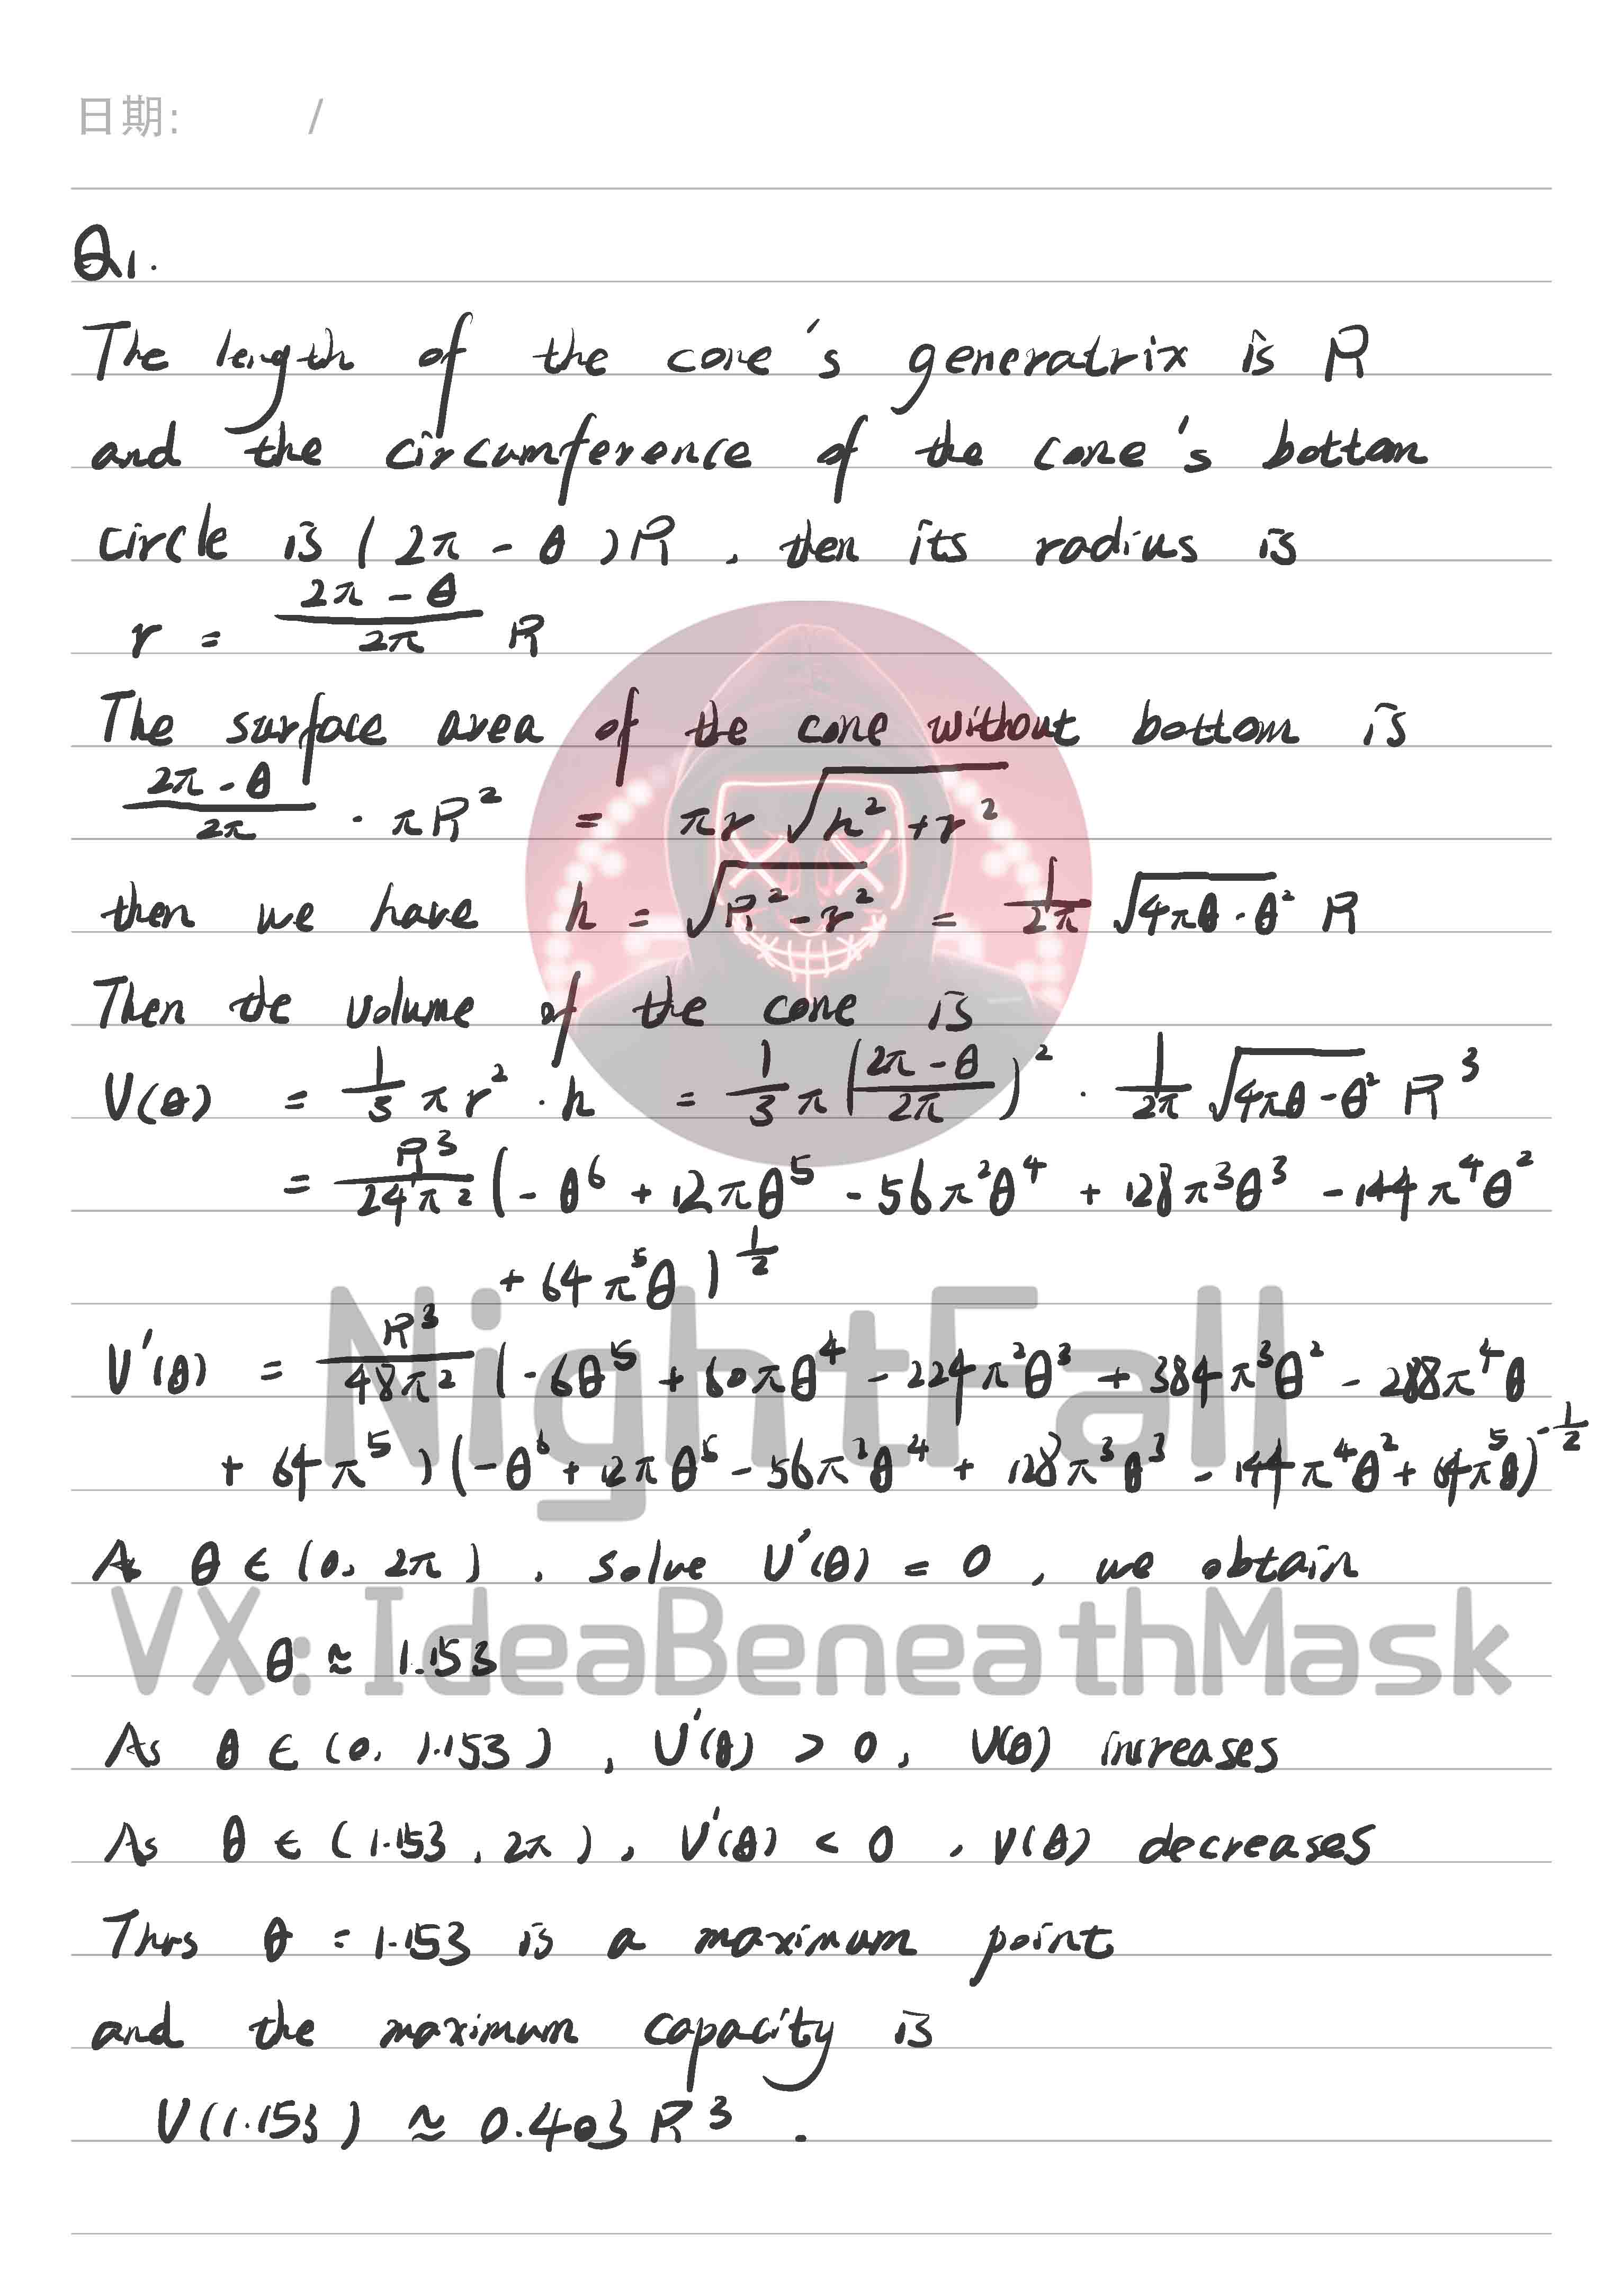 日期: /
Q1.
The length of the cone's generatrix is R
and the circumference of the cone's bottom
circle is (2π - θ)R, then its radius is
r = \frac{2π - θ}{2π} R
The surface area of the cone without bottom is
\frac{2π - θ}{2π} · πR² = πr √(h² + r²)
then we have h = √(R² - r²) = \frac{1}{2π} √(4πθ - θ²) R
Then the volume of the cone is
V(θ) = \frac{1}{3} πr² · h = \frac{1}{3} π (\frac{2π - θ}{2π})² · \frac{1}{2π} √(4πθ - θ²) R³
= \frac{R³}{24π²} (-θ⁶ + 12πθ⁵ - 56π²θ⁴ + 128π³θ³ - 144π⁴θ²
+ 64π⁵θ)^{\frac{1}{2}}
NightFall
V'(θ) = \frac{R³}{48π²} (-6θ⁵ + 60πθ⁴ - 224π²θ³ + 384π³θ² - 288π⁴θ
+ 64π⁵)(-θ⁶ + 12πθ⁵ - 56π²θ⁴ + 128π³θ³ - 144π⁴θ² + 64π⁵θ)^{-\frac{1}{2}}
As θ ∈ (0, 2π), solve V'(θ) = 0, we obtain
VX: IdeaBeneathMask
θ ≈ 1.153
As θ ∈ (0, 1.153), V'(θ) > 0, V(θ) increases
As θ ∈ (1.153, 2π), V'(θ) < 0, V(θ) decreases
Thus θ = 1.153 is a maximum point
and the maximum capacity is
V(1.153) ≈ 0.403 R³.